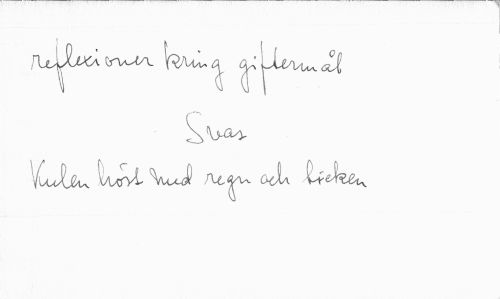 reflexioner kring giftermål
Svar
Kulen höst med regn och